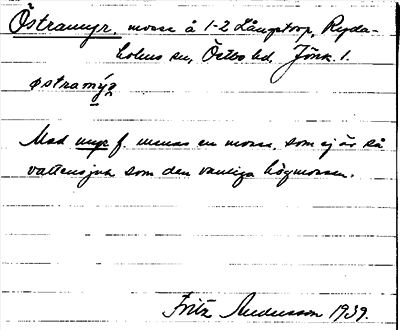 Östramyr, mosse å 1-2 Långstorp, Ryda-
holms sn, Östbo hd, Jönk. l.
östramýr
Med myr f. menas en mosse, som ej är så
vattensjuk som den vanliga högmossen.
Fritz Andersson 1939.